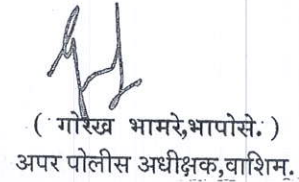 ( गोरख भामरे,भापोसे. )
अपर पोलीस अधीक्षक,वाशिम.